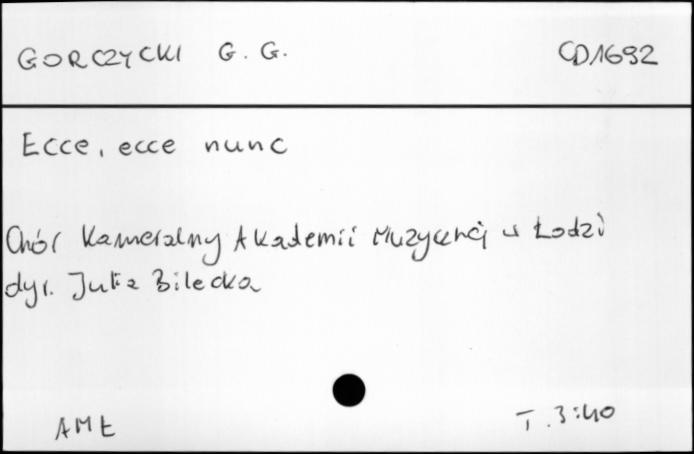 GORCZYCKI G. G. CD1692
Ecce, ecce nunc
Chór Kameralny Akademii Muzycznej w Łodzi
dyr. Jutta Bilecka
AMŁ T. 3:40